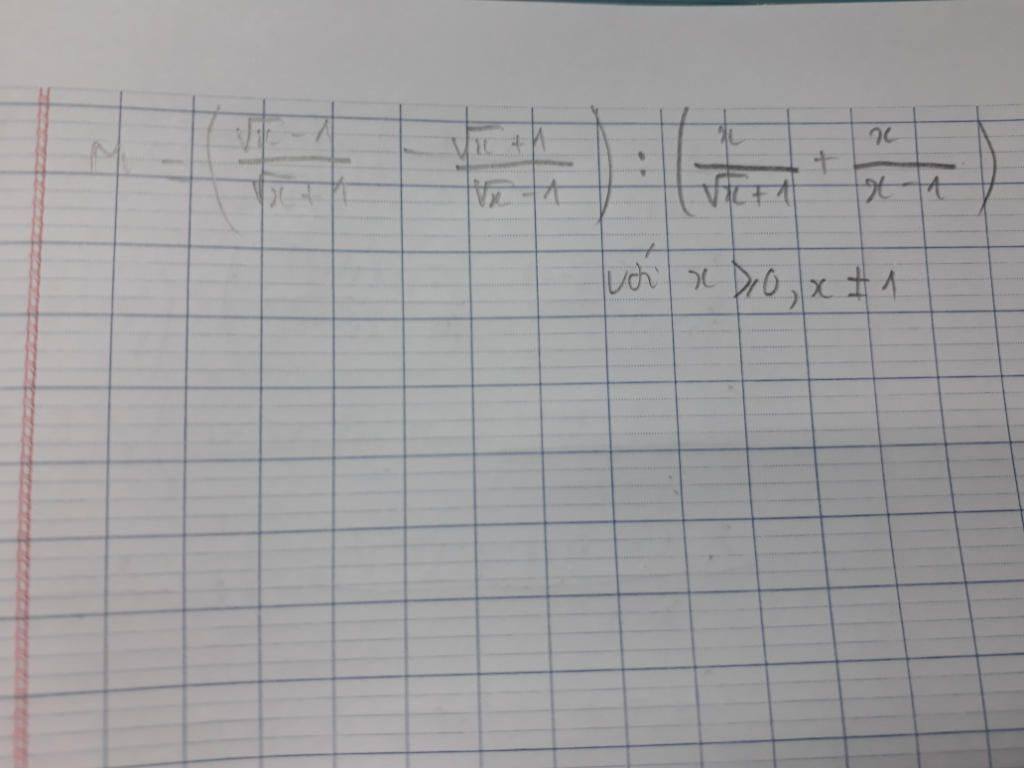 M = ( (√x - 1)/(√x + 1) - (√x + 1)/(√x - 1) ) : ( x/(√x + 1) + x/(x - 1) )
với x ⩾ 0, x ≠ 1